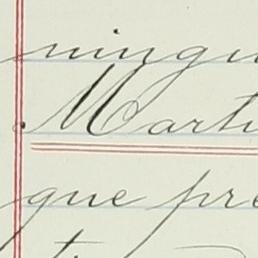 ningu
Marti
que pre